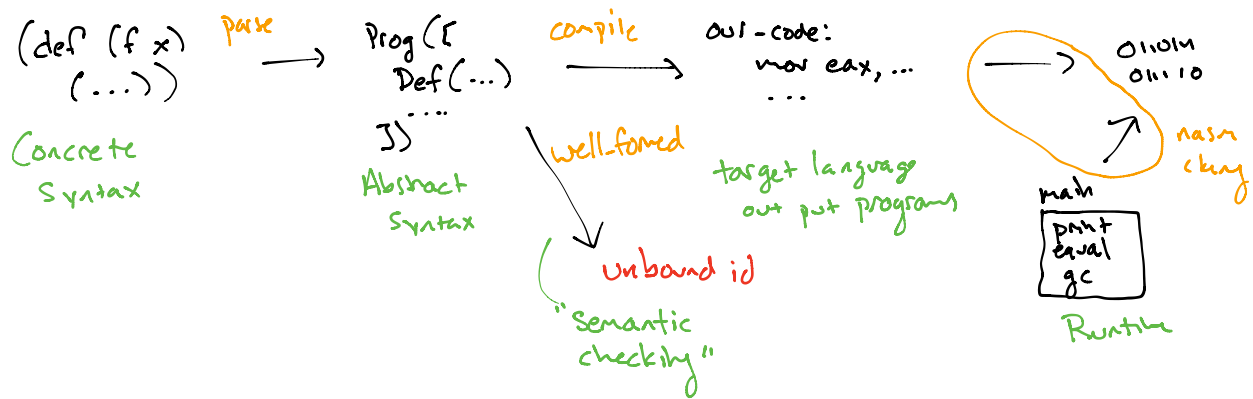 (def (f x)
(...))
Concrete
Syntax
parse
Prog([
Def(...)
....
])
Abstract
Syntax
compile
well_fomed
unbound id
"semantic
checking"
our_code:
mov eax, ...
...
target language
out put programs
011011
011110
nasm
clang
main
print
equal
gc
Runtime